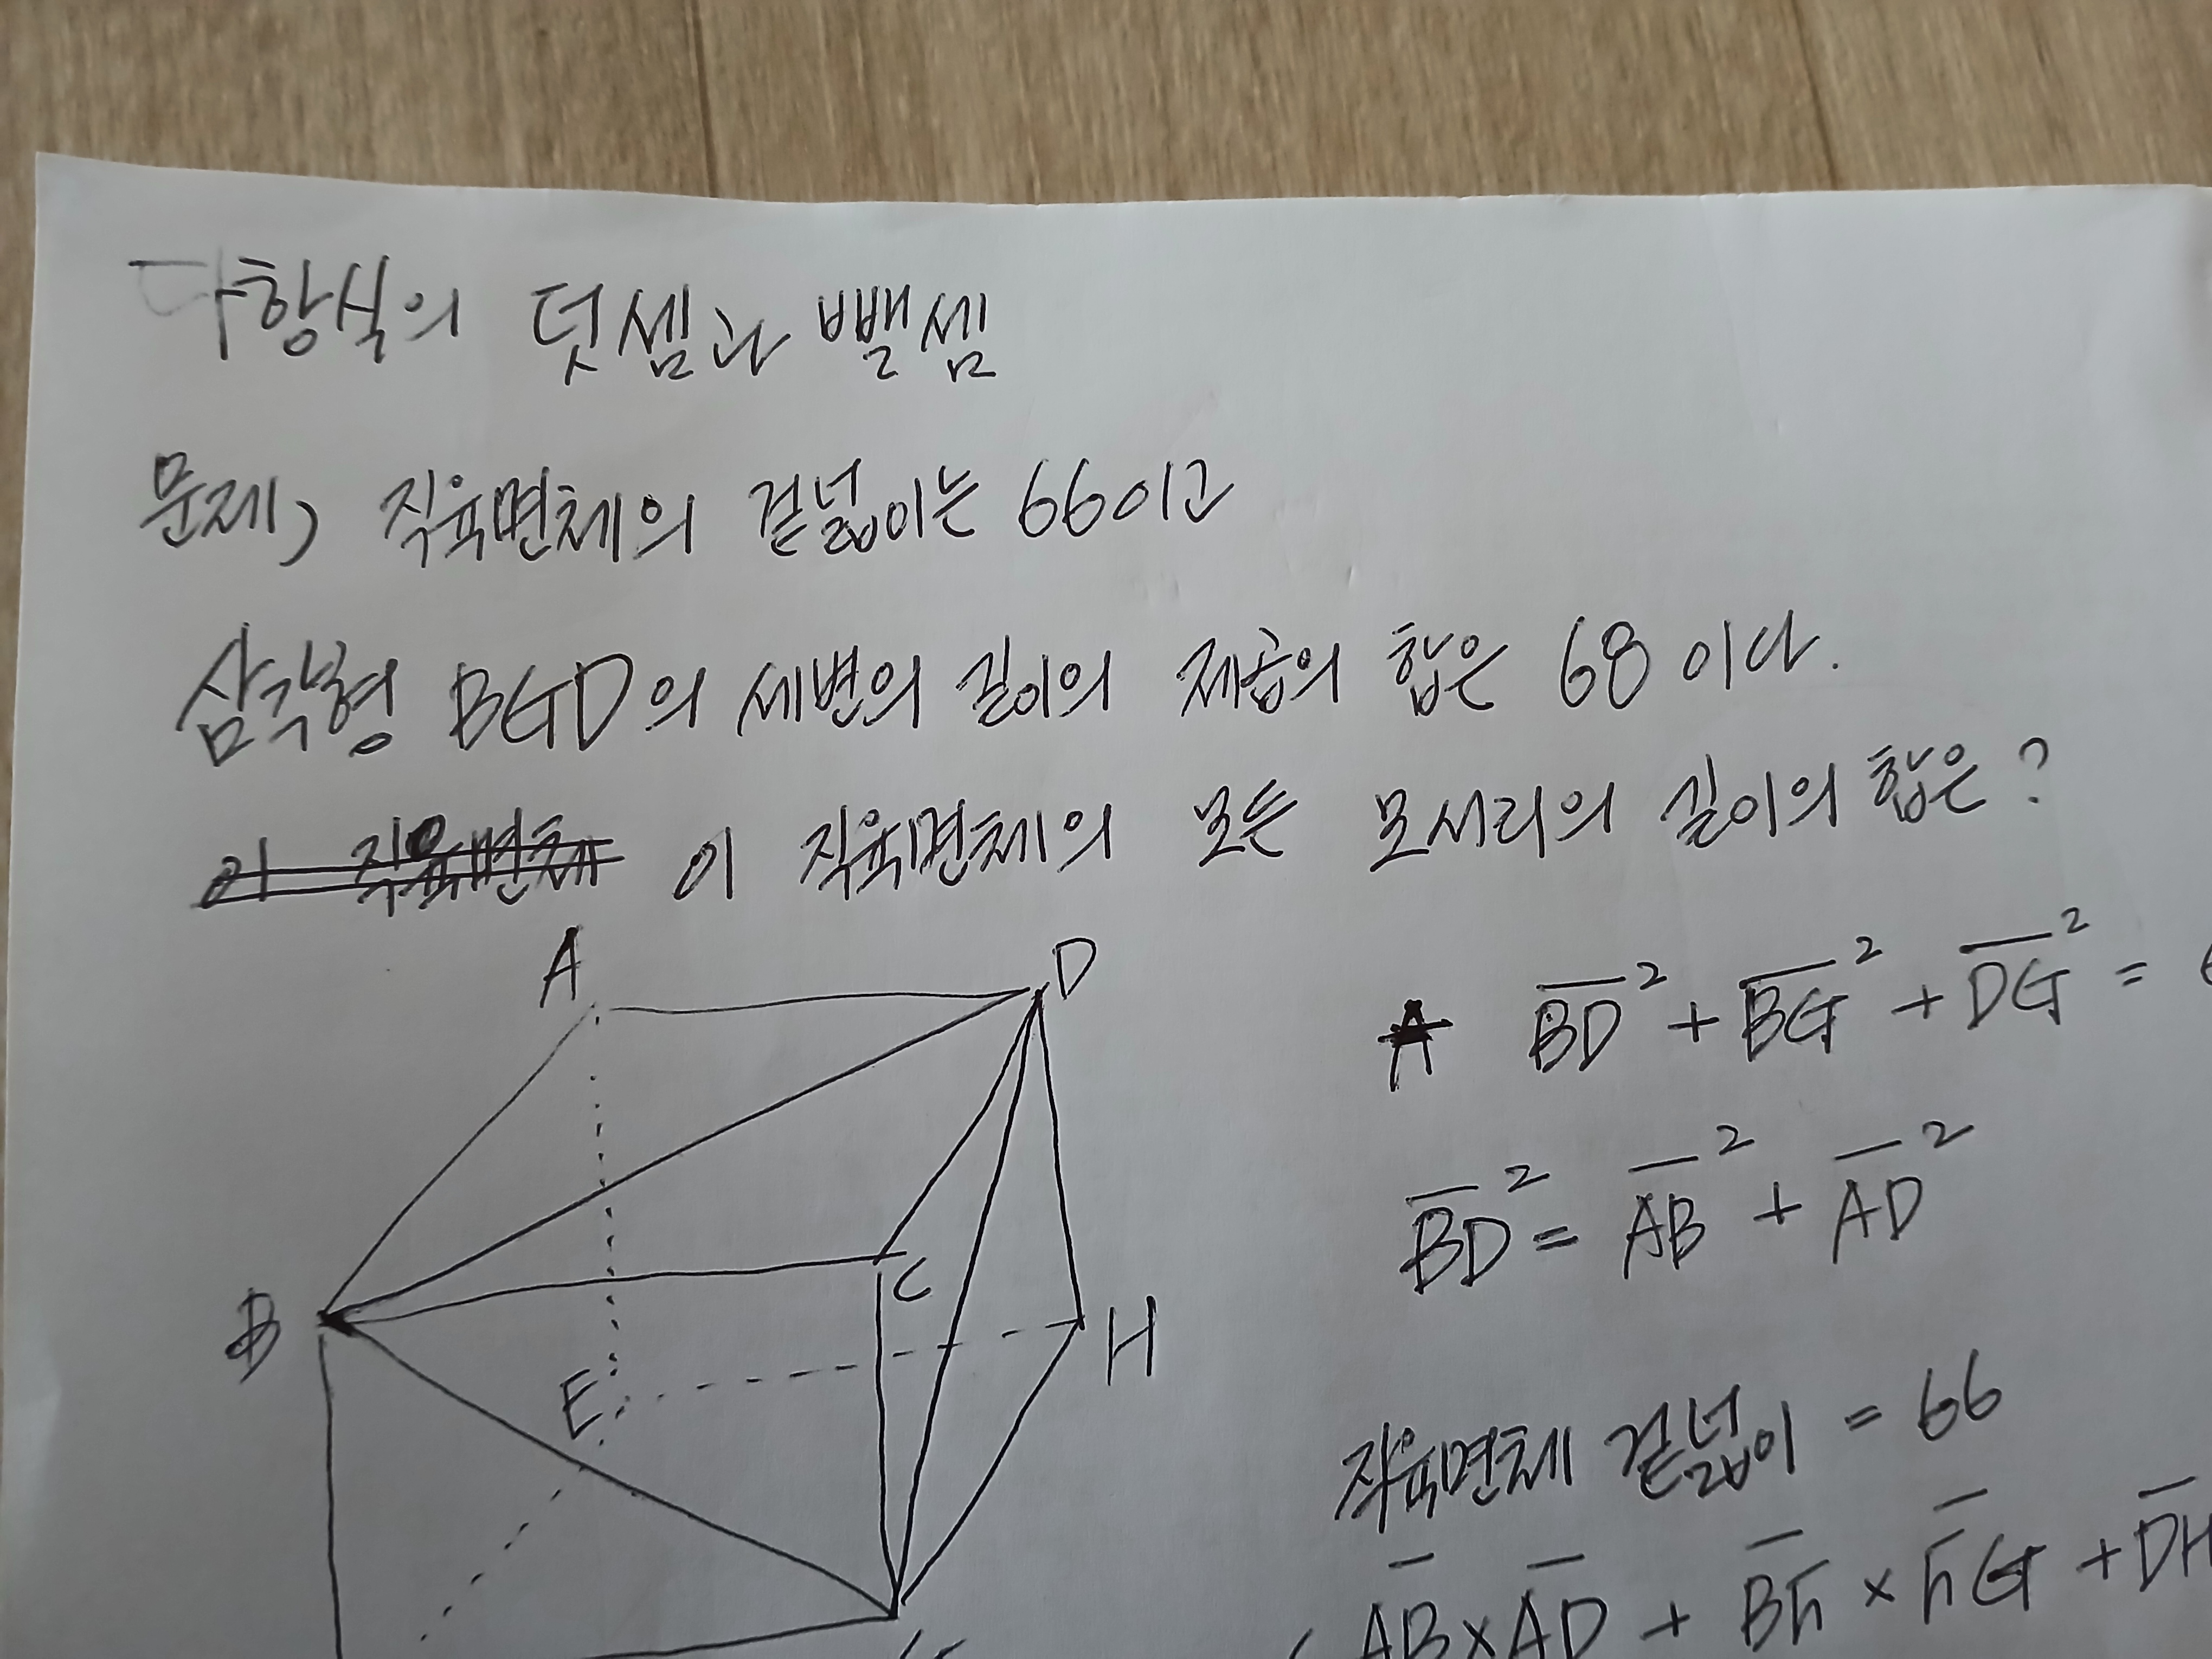 다항식의 덧셈과 뺄셈
문제) 직육면체의 겉넓이는 66이고
삼각형 BGD의 세변의 길이의 제곱의 합은 68이다.
이 직육면체의 모든 모서리의 길이의 합은?
A
D
B
C
E
H
G
BD² + BG² + DG² =
BD² = AB² + AD²
직육면체 겉넓이 = 66
AB×AD + BF × FG + DH